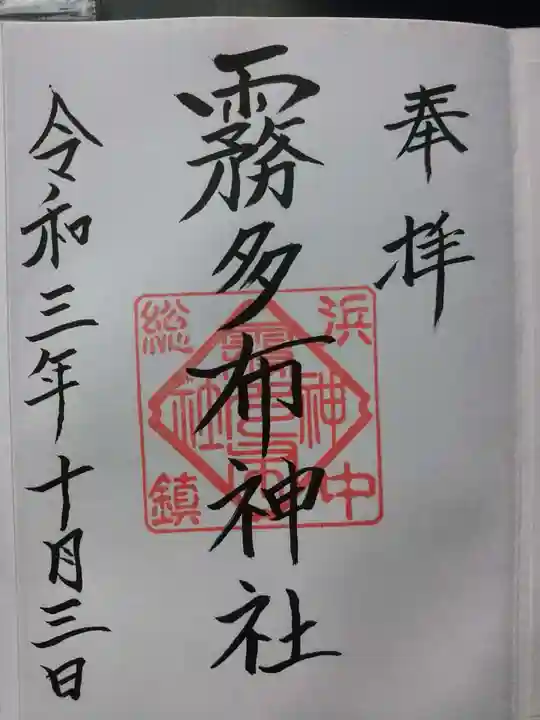 奉拝
霧多布神社
浜中
総鎮
神社
令和三年十月三日